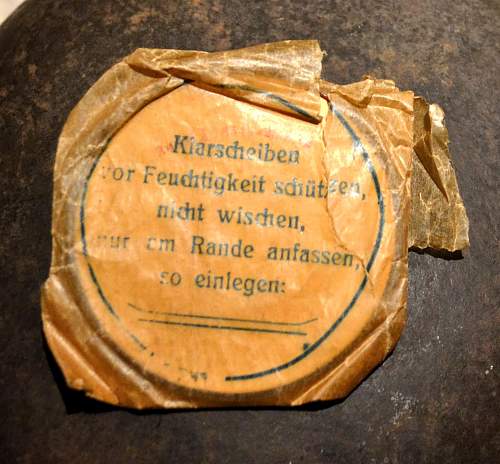 Klarscheiben
vor Feuchtigkeit schützen,
nicht wischen,
nur am Rande anfassen,
so einlegen: